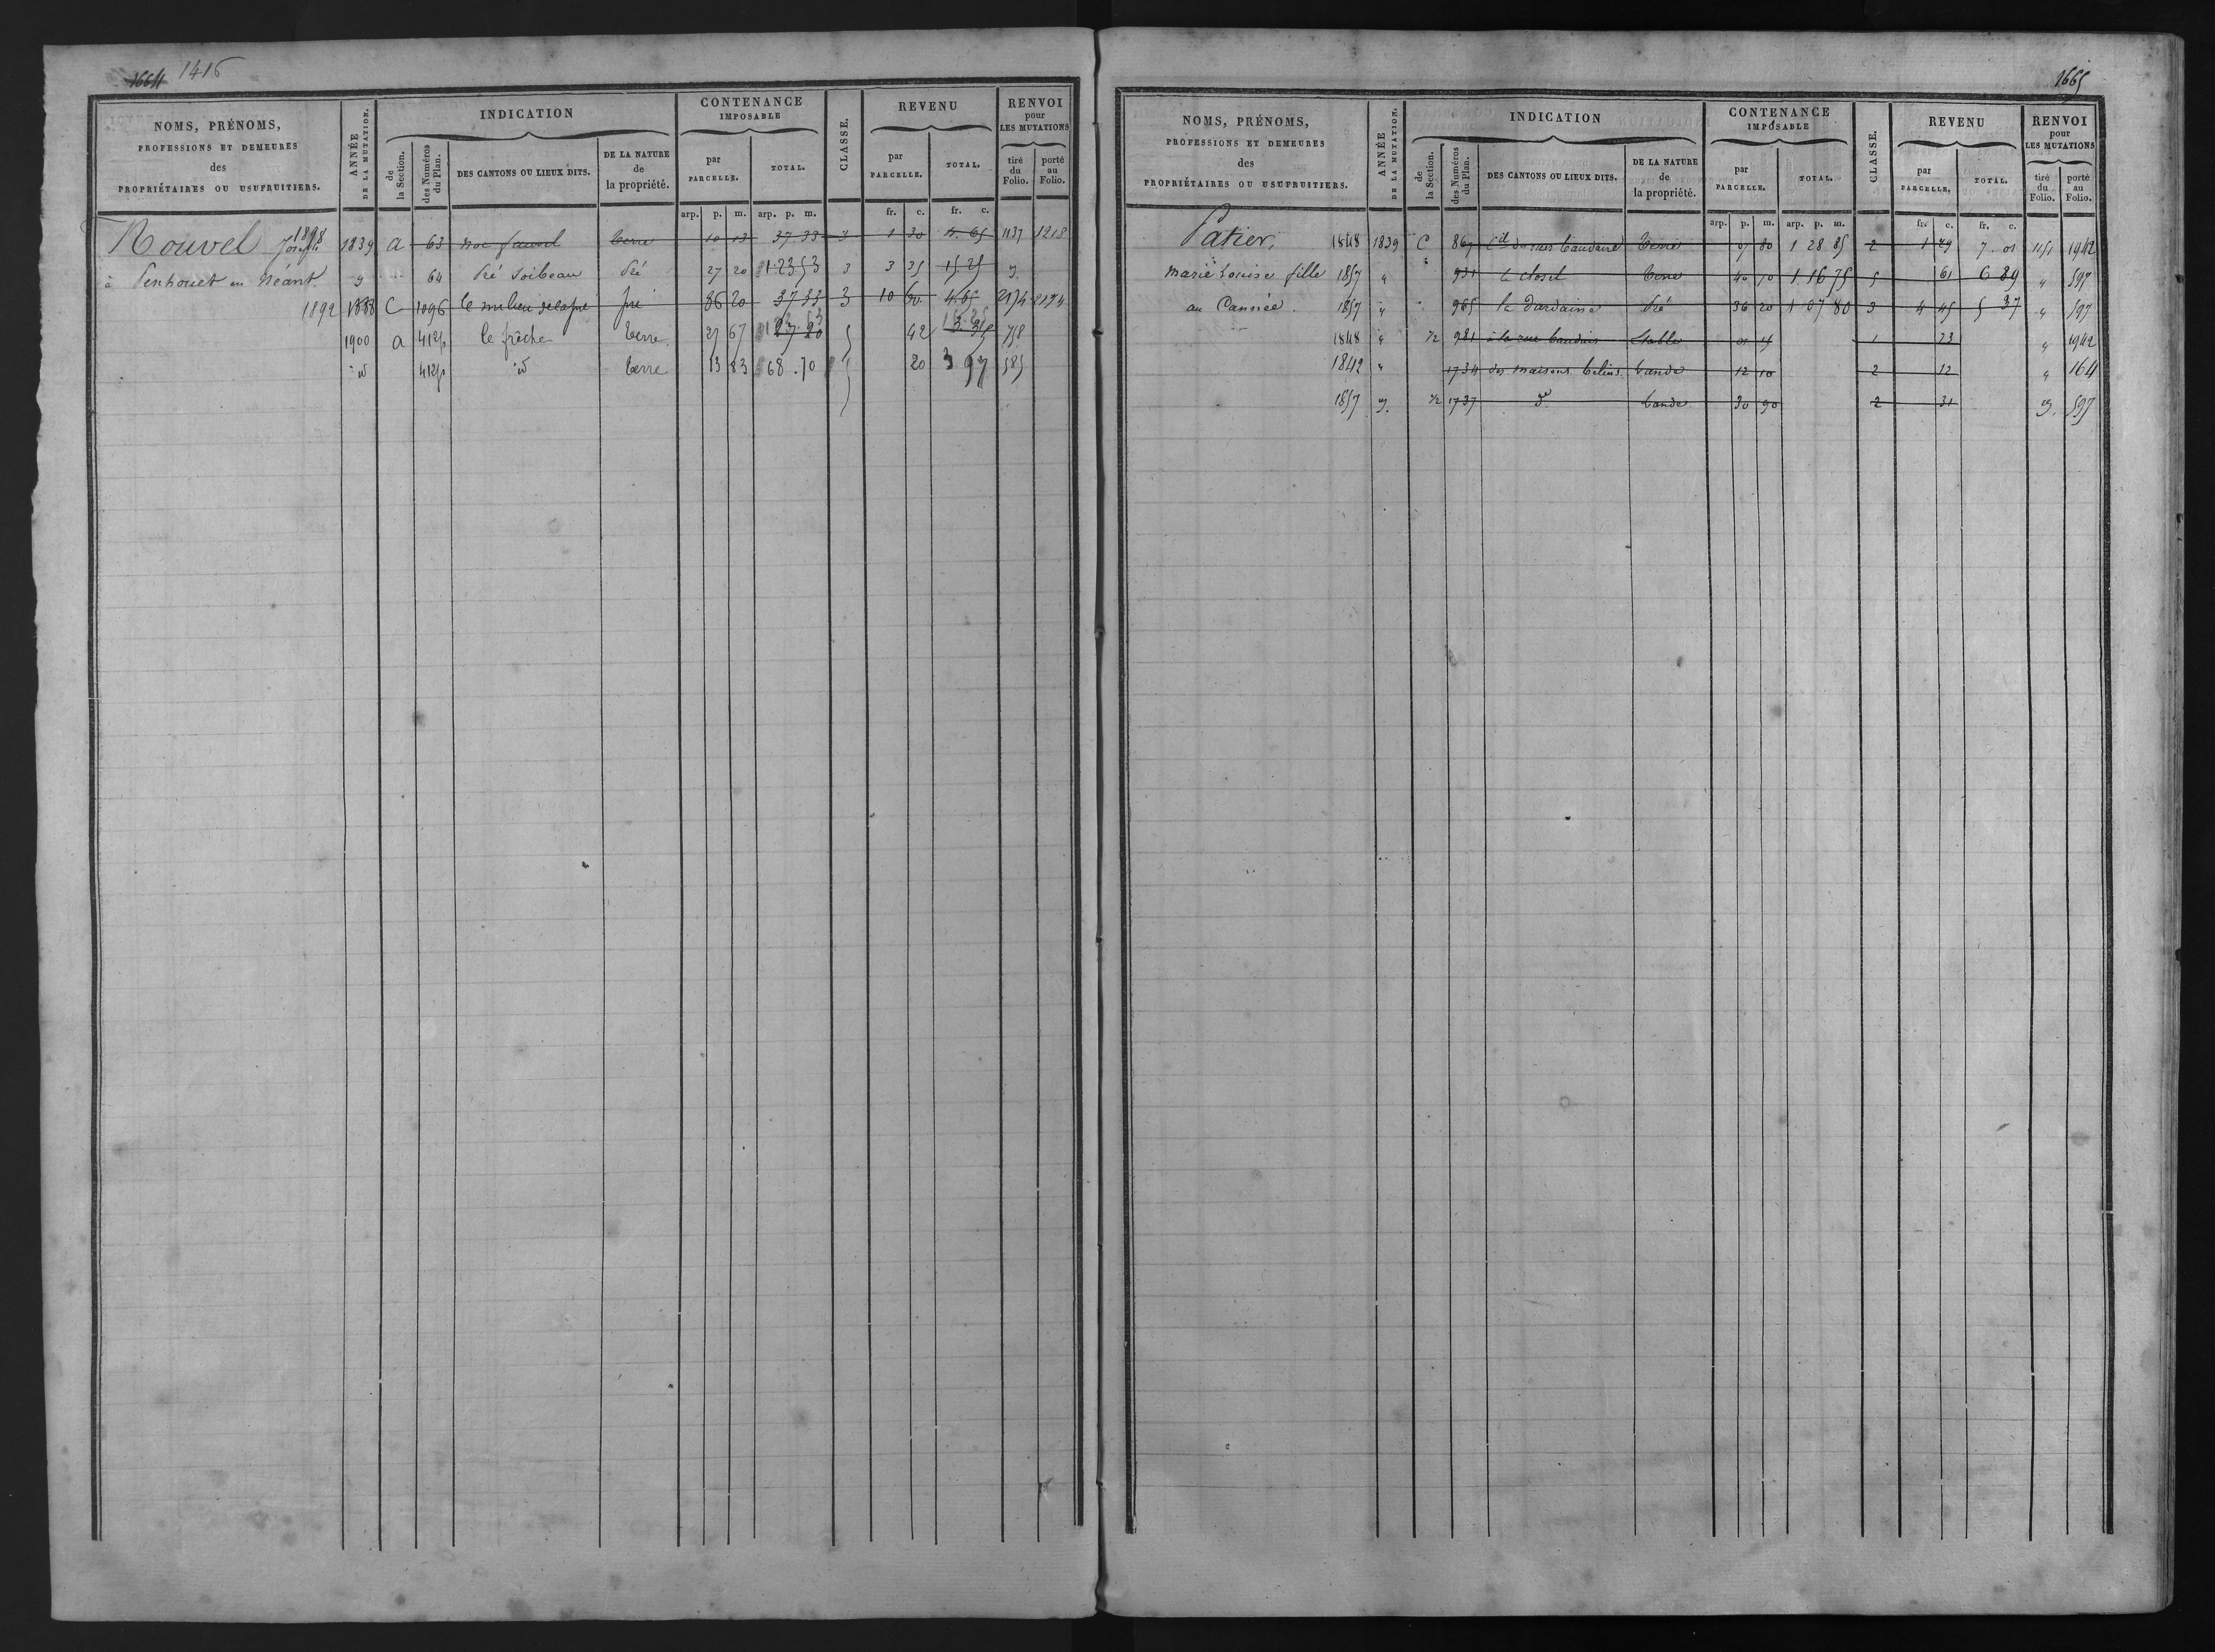 1664 1416
NOMS, PRÉNOMS, PROFESSIONS ET DEMEURES des PROPRIÉTAIRES OU USUFRUITIERS.
ANNÉE DE LA MUTATION.
INDICATION
de la Section.
des Numéros du Plan.
DES CANTONS OU LIEUX DITS.
DE LA NATURE de la propriété.
CONTENANCE IMPOSABLE
par PARCELLE.
TOTAL.
CLASSE.
REVENU
par PARCELLE.
TOTAL.
RENVOI pour LES MUTATIONS
tiré du Folio.
porté au Folio.
arp. p. m. arp. p. m. fr. c. fr. c.
Nouvel Joseph 1898 1839 a 63 terre 10 13 37 33 3 1 30 4. 65 1137 1218
à Penhouet en Néant. 64 Pré Soibeau Pré 27 20 1.23 53 3 3 35 15.25
1892 1888 C 1096 le milieu pré 86 20 37 33 3 10 60 4.65 2174 2174
1900 a 412p le frêche terre 27 67 5 42 758
id 412p id terre 13 83 68.70 20 3 97 585
1665
NOMS, PRÉNOMS, PROFESSIONS ET DEMEURES des PROPRIÉTAIRES OU USUFRUITIERS.
ANNÉE DE LA MUTATION.
INDICATION
de la Section.
des Numéros du Plan.
DES CANTONS OU LIEUX DITS.
DE LA NATURE de la propriété.
CONTENANCE IMPOSABLE
par PARCELLE.
TOTAL.
CLASSE.
REVENU
par PARCELLE.
TOTAL.
RENVOI pour LES MUTATIONS
tiré du Folio.
porté au Folio.
arp. p. m. arp. p. m. fr. c. fr. c.
Patier, 1848 1839 C 869 terre 80 1 28 85 2 1 7. 01 1151 1942
Marie Louise fille 1857 " 931 le closel terre 40 10 1 16 75 5 61 6 89 " 597
au Cannée. 1857 " 965 la Dardaine Pré 36 20 1 07 80 3 4 45 5 37 " 597
1848 " 1/2 981 à la rue Stable 1 23 " 1942
1842 " 1734 des maisons belins Lande 12 10 2 12 " 164
1857 1/2 1737 do Lande 30 90 2 31 597